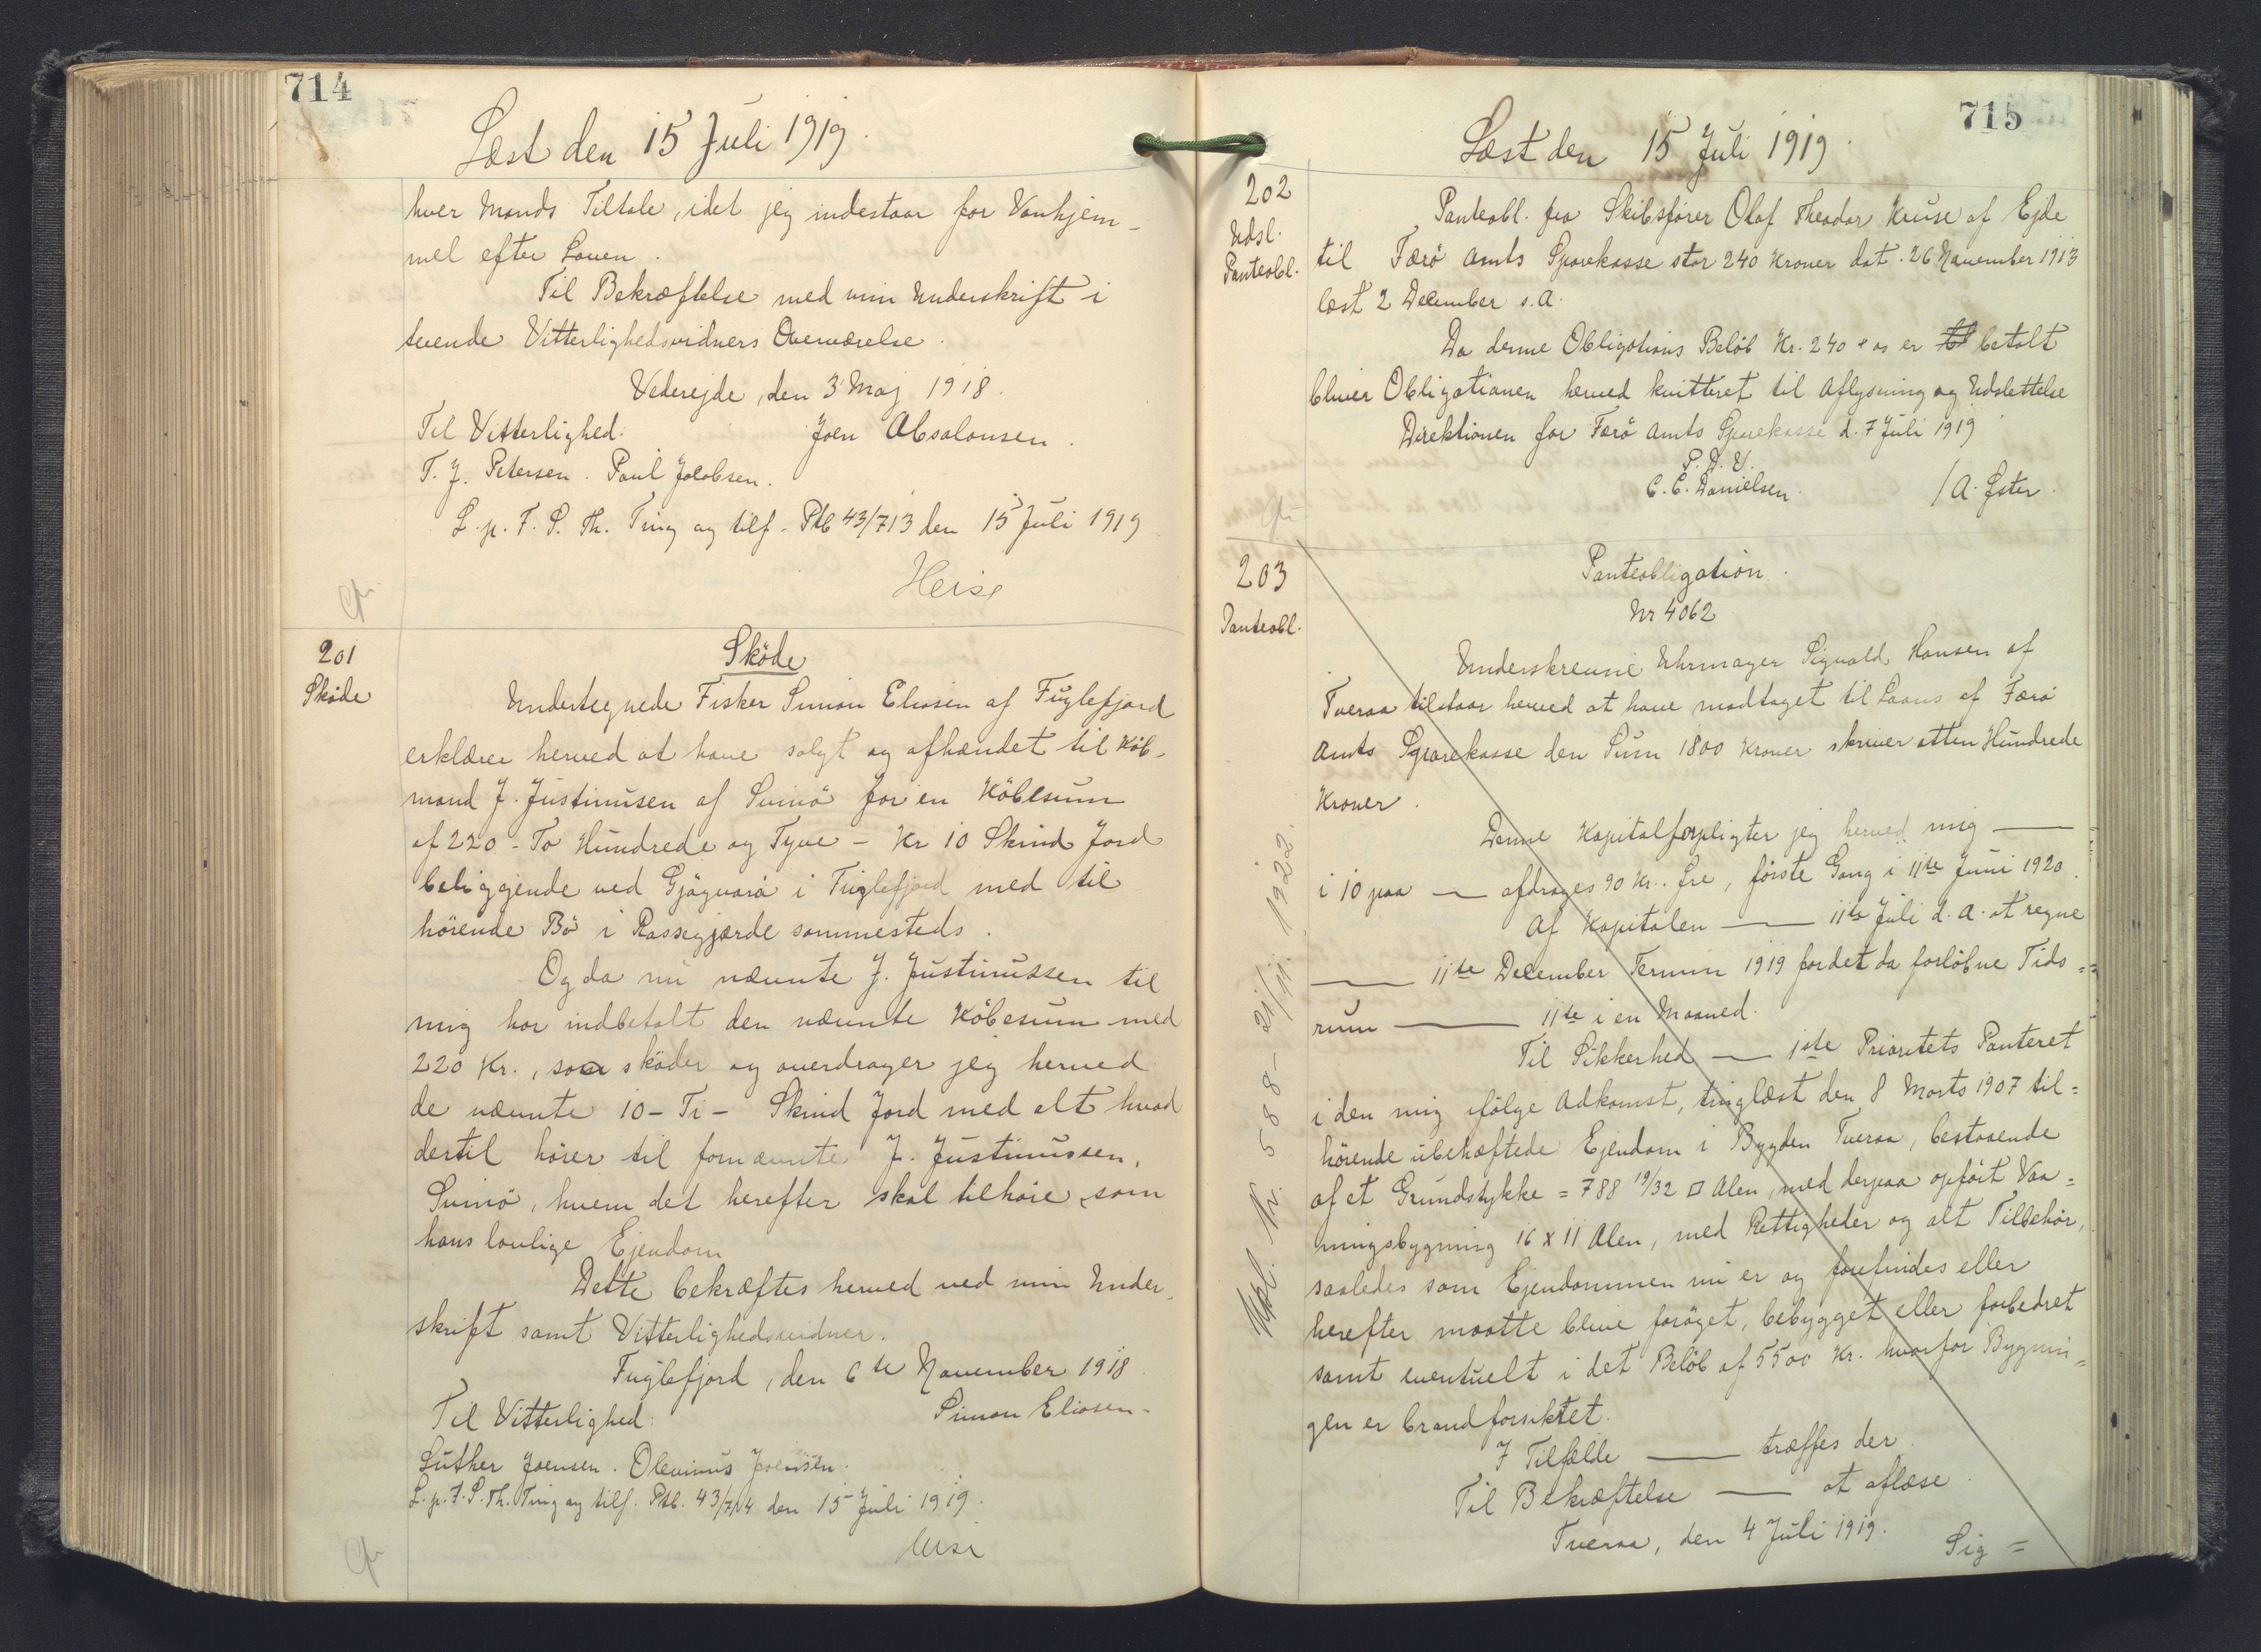 714
Læst den 15 Juli 1919.
hver Mands Tiltale, idet jeg indestaar for Vanhjem-
mel efter Loven.
Til Bekræftelse med min Underskrift i
tvende Vitterlighedsvidners Overværelse.
Vederejde, den 3' Maj 1918.
Til Vitterlighed: Joen Absalonsen.
T. J. Petersen. Paul Jacobsen.
L. p. F. S. Th. Ting og tilf. Ptb 43/713 den 15 Juli 1919
Heise
201
Sköde
Sköde
Undertegnede Fisker Simon Eliasen af Fuglefjord
erklærer herved at have solgt og afhændet til Köb-
mand J. Justinusen af Svinö for en Köbesum
af 220 - To Hundrede og Tyve - Kr 10 Skind Jord
beliggende ved Gjögvará i Fuglefjord med til
hörende Bö i Rassegjærde sammesteds.
Og da nu nævnte J. Justinussen til
mig har indbetalt den nævnte Köbesum med
220 Kr., saa sköder og overdrager jeg herved
de nævnte 10 - Ti - Skind Jord med alt hvad
dertil hörer til fornævnte J. Justinussen,
Svinö, hvem det herefter skal tilhöre som
hans lovlige Ejendom
Dette bekræftes herved ved min Under-
skrift samt Vitterlighedsvidner.
Fuglefjord, den 6te November 1918
Til Vitterlighed: Simon Eliasen-
Luther Joensen. Olevinus Joensen.
L. p. F. S. Th. Ting og tilf. Ptb. 43/714 den 15 Juli 1919.
Heise
715
Læst den 15 Juli 1919.
202
Udsl.
Panteobl.
Panteobl. fra Skibsförer Olaf Theodor Kruse af Ejde
til Færö Amts Sparekasse stor 240 Kroner dat. 26 November 1913
læst 2 December s. A.
Da denne Obligations Belöb Kr. 240 er betalt
bliver Obligationen herved kvitteret til Aflysning og Udslettelse
Direktionen for Færö Amts Sparekasse d. 7 Juli 1919
P. D. V.
C. C. Danielsen. / A. Öster.
203
Panteobl.
Panteobligation.
Nr 4062
Underskrevne Uhrmager Sigvald Hansen af
Tveraa tilstaar herved at have modtaget til Laans af Færö
Amts Sparekasse den Sum 1800 Kroner skriver atten Hundrede
Kroner.
Denne Kapital forpligter jeg herved mig —
i 10 paa — afdrages 90 Kr. Öre, förste Gang i 11te Juni 1920.
Af Kapitalen — 11te Juli d. A. at regne
— 11te December Termin 1919 for det da forlöbne Tids=
rum — 11te i en Maaned.
Til Sikkerhed — 1ste Prioritets Panteret
i den mig ifölge Adkomst, tinglæst den 8 Marts 1907 til=
hörende ubehæftede Ejendom i Bygden Tveraa, bestaaende
af et Grundstykke = 788 19/32 □ Alen, med derpaa opfört Vaa=
ningsbygning 16 x 11 Alen, med Rettigheder og alt Tilbehör,
saaledes som Ejendommen nu er og forefindes eller
herefter maatte blive foröget, bebygget eller forbedret
samt eventuelt i det Belöb af 5500 Kr. hvorfor Bygnin=
gen er brandforsiktet.
I Tilfælde — træffes der.
Til Bekræftelse — at aflæse.
Tveraa, den 4 Juli 1919.
Sig =
Udsl. Nr. 588 - 21/11. 1922.